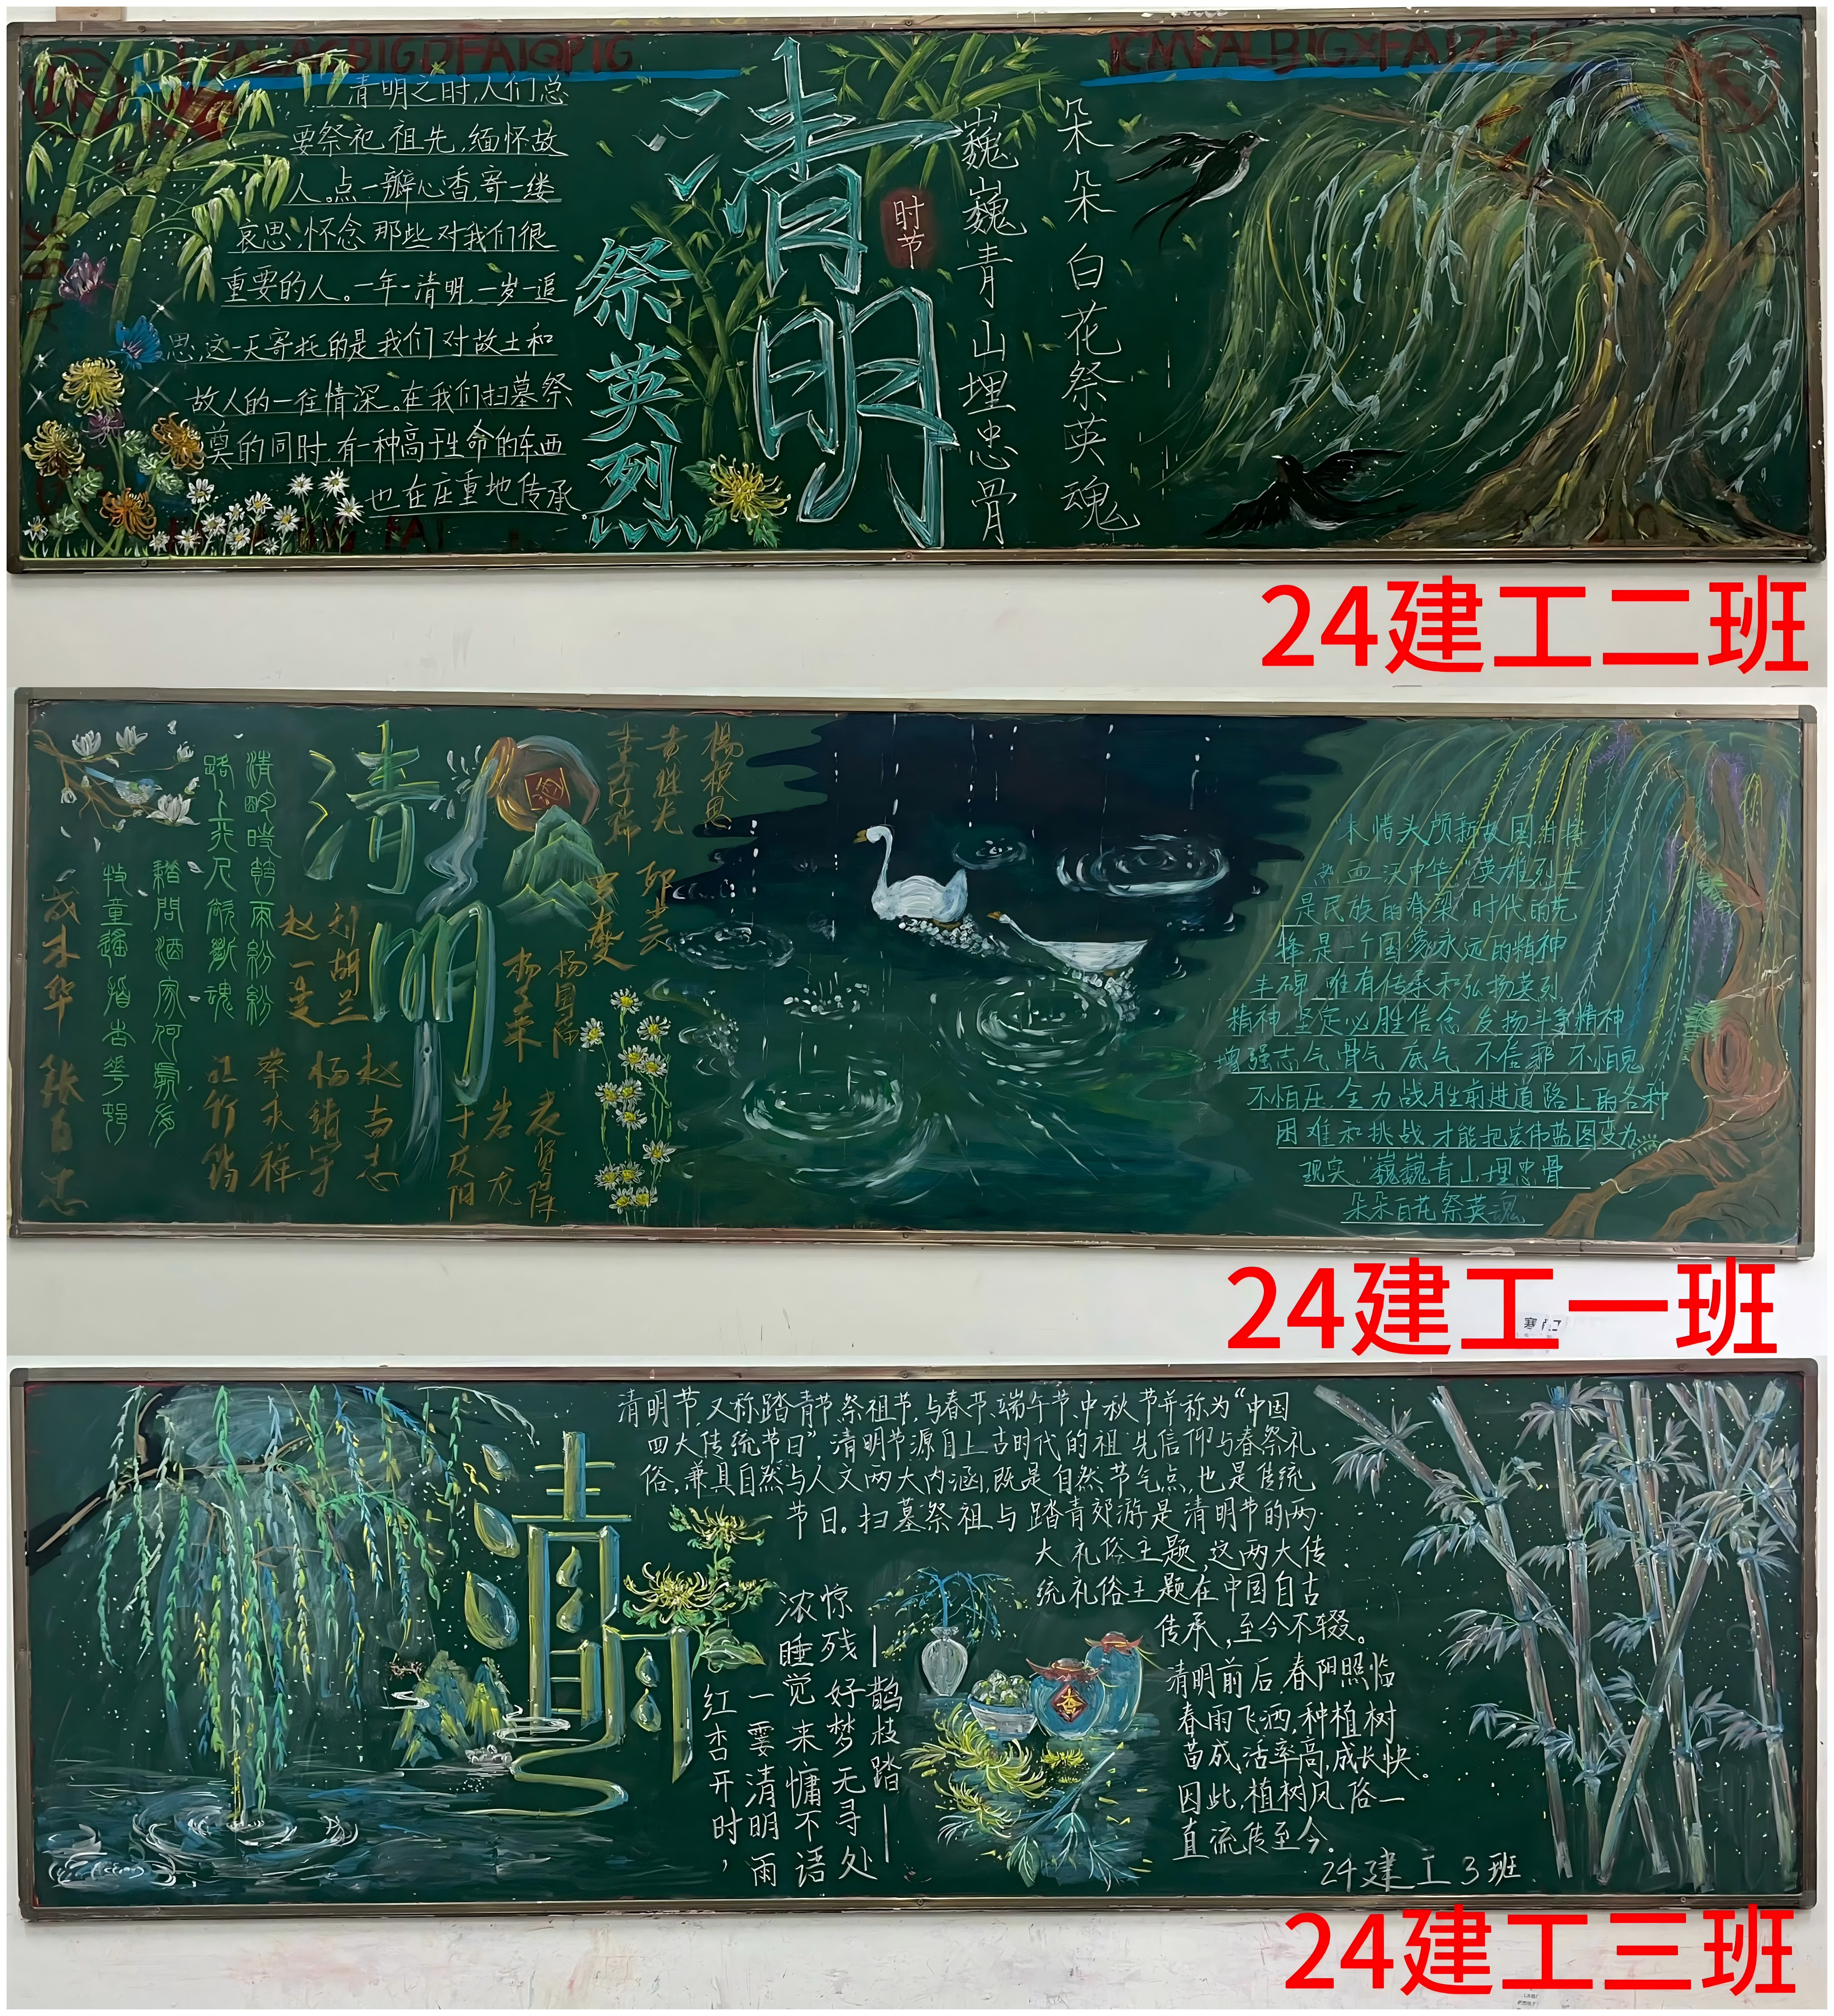 清明之时,人们总
要祭祀祖先,缅怀故
人。点一瓣心香,寄一缕
哀思,怀念那些对我们很
重要的人。一年一清明,一岁一追
思,这一天寄托的是我们对故土和
故人的一往情深。在我们扫墓祭
奠的同时,有一种高于生命的东西
也在庄重地传承
祭英烈
清明
时节
巍巍青山埋忠骨
朵朵白花祭英魂
24建工二班
清明時節雨紛紛
路上行人欲斷魂
藉問酒家何處有
牧童遙指杏花邨
成本华
张自忠
清明
赵一曼
刘胡兰
杨靖宇
赵尚志
杨国福
杨根思
黄继光
邱少云
未惜头颅新故国,甘将
热血沃中华"英雄烈士
是民族的脊梁,时代的先
锋,是一个国家永远的精神
丰碑,唯有传承和弘扬英烈
精神,坚定必胜信念,发扬斗争精神
增强志气,骨气,底气,不信邪,不怕鬼
不怕压,全力战胜前进道路上的各种
困难和挑战,才能把宏伟蓝图变为
现实."巍巍青山埋忠骨
朵朵百花祭英魂"
24建工一班
清明节,又称踏青节,祭祖节,与春节、端午节、中秋节并称为“中国
四大传统节日”,清明节源自上古时代的祖先信仰与春祭礼
俗,兼具自然与人文两大内涵,既是自然节气点,也是传统
节日。扫墓祭祖与踏青郊游是清明节的两
大礼俗主题,这两大传
统礼俗主题在中国自古
传承,至今不辍。
清明前后,春阳照临
春雨飞洒,种植树
苗成活率高,成长快。
因此,植树风俗一
直流传至今。
24建工3班
清明
红杏开时,
一霎清明雨
浓睡觉来慵不语
惊残好梦无寻处
—鹊枝踏—
24建工三班